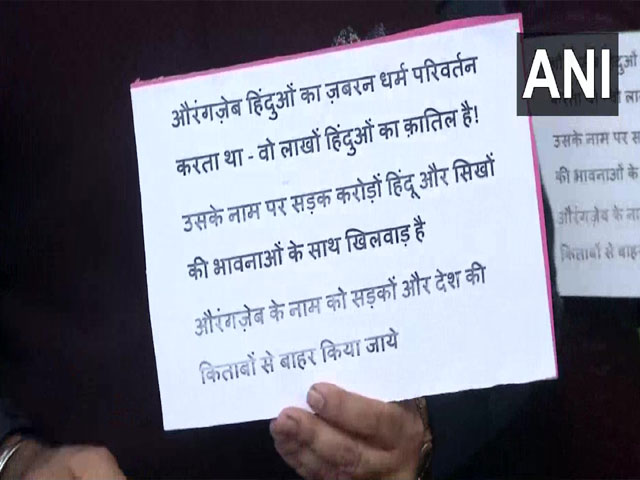 ANI
औरंगज़ेब हिंदुओं का ज़बरन धर्म परिवर्तन
करता था - वो लाखों हिंदुओं का क़ातिल है!
उसके नाम पर सड़क करोड़ों हिंदू और सिखों
की भावनाओं के साथ खिलवाड़ है
औरंगज़ेब के नाम को सड़कों और देश की
किताबों से बाहर किया जाये
उसके नाम पर
की भावनाओं के
औरंगज़ेब के
किताबों से